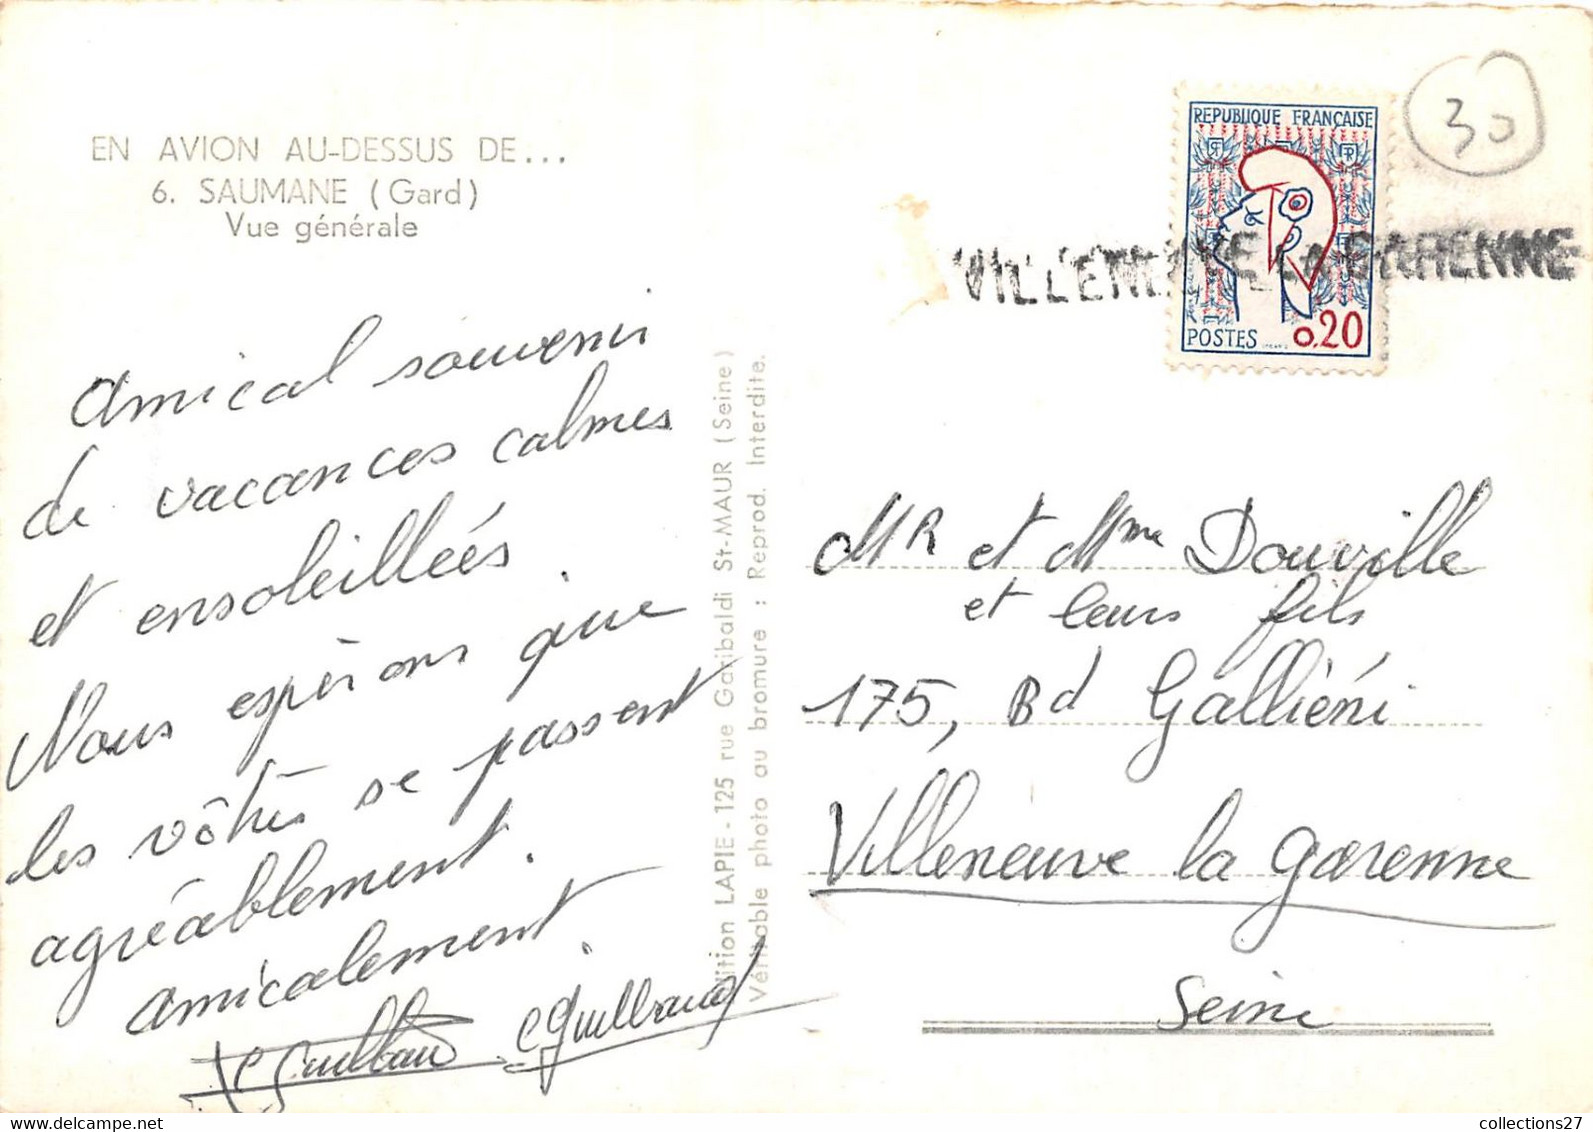 EN AVION AU-DESSUS DE...
6. SAUMANE (Gard)
Vue générale
Amical souvenir
de vacances calmes
et ensoleillées.
Nous espérons que
les vôtres se passent
agréablement.
amicalement.
Guilbaud
Guilbaud
dition LAPIE - 125 rue Garibaldi St-MAUR (Seine)
Véritable photo au bromure : Reprod. Interdite.
30
REPUBLIQUE FRANÇAISE
POSTES 0,20
VILLENEUVE LA GARENNE
MR et Mme Douville
et leurs fils
175, Bd Galliéni
Villeneuve la Garenne
Seine
collections27